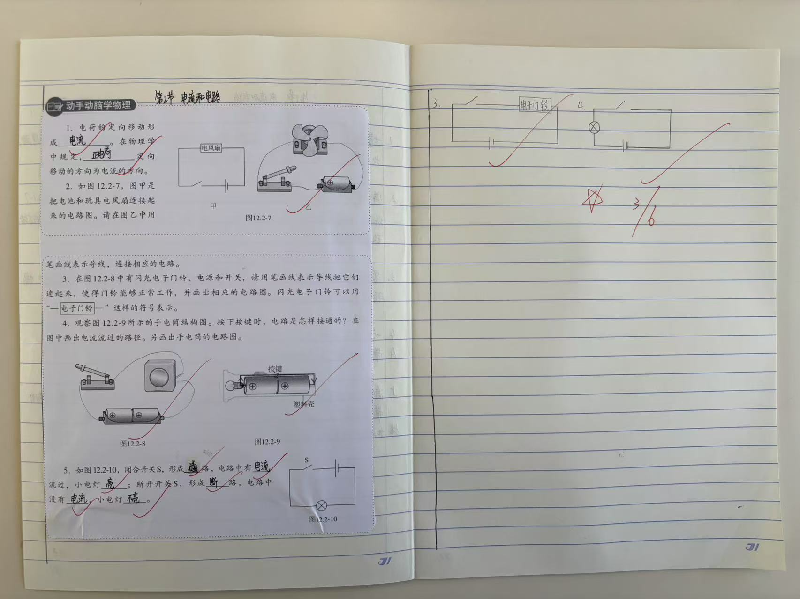 动手动脑学物理
第2节 电流和电路
1. 电荷的定向移动形
成 电流 。在物理学
中规定, 正电荷 定向
移动的方向为电流的方向。
2. 如图12.2-7,图甲是
把电池和玩具电风扇连接起
来的电路图。请在图乙中用
电风扇
甲
乙
图12.2-7
笔画线表示导线,连接相应的电路。
3. 在图12.2-8中有闪光电子门铃、电源和开关,请用笔画线表示导线把它们
连起来,使得门铃能够正常工作,并画出相应的电路图。闪光电子门铃可以用
“电子门铃”这样的符号表示。
4. 观察图12.2-9所示的手电筒结构图:按下按键时,电路是怎样接通的?在
图中画出电流流过的路径。另画出手电筒的电路图。
图12.2-8
按键
塑料壳
图12.2-9
5. 如图12.2-10,闭合开关S,形成 通 路,电路中有 电流
流过,小电灯 亮 ;断开开关S,形成 断 路,电路中
没有 电流 ,小电灯 不亮 。
S
图12.2-10
3.
电子门铃
4.
3/6